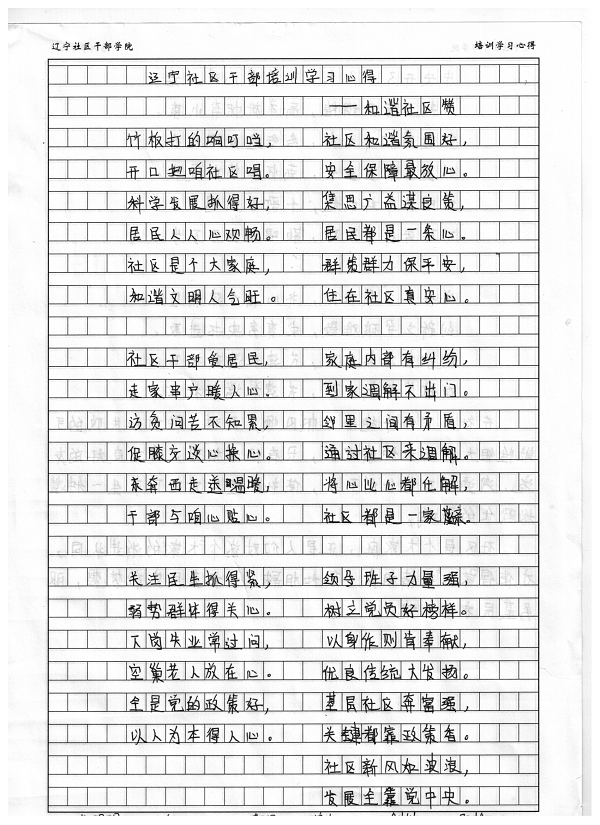 辽宁社区干部学院 培训学习心得
辽宁社区干部培训学习心得
——和谐社区赞
竹板打的响叮当， 社区和谐氛围好，
开口把咱社区唱。 安全保障最放心。
科学发展抓得好， 集思广益谋良策，
居民人人心欢畅。 居民都是一条心。
社区是个大家庭， 群策群力保平安，
和谐文明人气旺。 住在社区真安心。
社区干部爱居民， 家庭内部有纠纷，
走家串户暖人心。 到家调解不出门。
访贫问苦不知累， 邻里之间有矛盾，
促膝交谈心换心。 通过社区来调解。
东奔西走送温暖， 将心比心都化解，
干部与咱心贴心。 社区都是一家亲。
关注民生抓得紧， 领导班子力量强，
弱势群体得关心。 树立党员好榜样。
下岗失业常过问， 以身作则肯奉献，
空巢老人放在心。 优良传统大发扬。
全是党的政策好， 基层社区奔富强，
以人为本得人心。 关键都靠政策香。
社区新风如波浪，
发展全靠党中央。